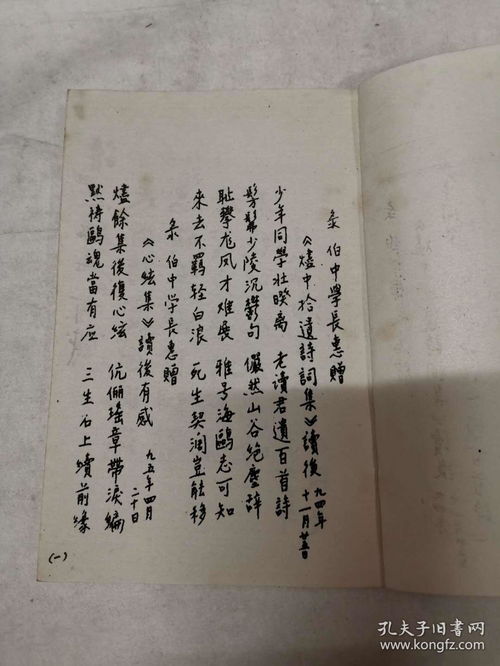 承 伯中学長惠贈
《燼中拾遺詩詞集》讀後 九四年
十一月廿五日
少年同學壯暌离 老讀君遺百首詩
髣髴少陵沉鬱句 儼然山谷絕塵辞
耻攀龙凤才难展 雅号海鷗志可知
來去不羁轻白浪 死生契闊豈能移
承 伯中学長惠贈
《心絃集》讀後有感 九五年四月
二十日
燼餘集後復心絃 伉儷瑤章帶淚編
默祷鷗魂當有应 三生石上續前缘
(一)
孔夫子旧书网
kongfz.com